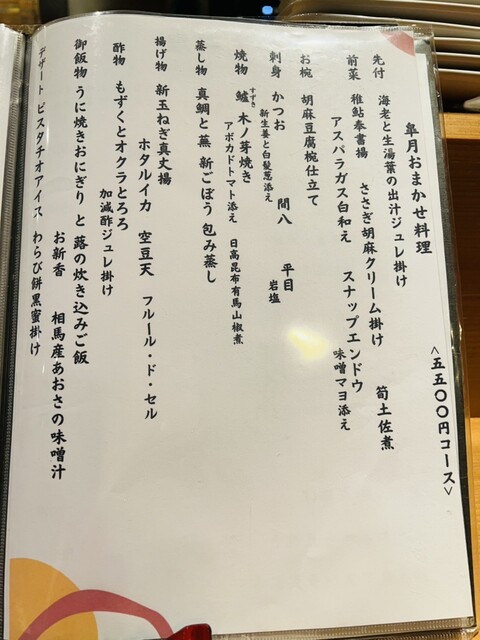 皐月おまかせ料理
<五五〇〇円コース>
先付　海老と生湯葉の出汁ジュレ掛け
前菜　稚鮎奉書揚　ささぎ胡麻クリーム掛け　筍土佐煮
アスパラガス白和え　スナップエンドウ
味噌マヨ添え
お椀　胡麻豆腐椀仕立て
刺身　かつお　間八　平目
新生姜と白髪葱添え　岩塩
すずき
焼物　鱸　木ノ芽焼き
アボカドトマト添え　日高昆布有馬山椒煮
蒸し物　真鯛と蕪　新ごぼう　包み蒸し
揚げ物　新玉ねぎ真丈揚
ホタルイカ　空豆天　フルール・ド・セル
酢物　もずくとオクラとろろ
加減酢ジュレ掛け
御飯物　うに焼きおにぎり　と　蕗の炊き込みご飯
お新香　相馬産あおさの味噌汁
デザート　ピスタチオアイス　わらび餅黒蜜掛け